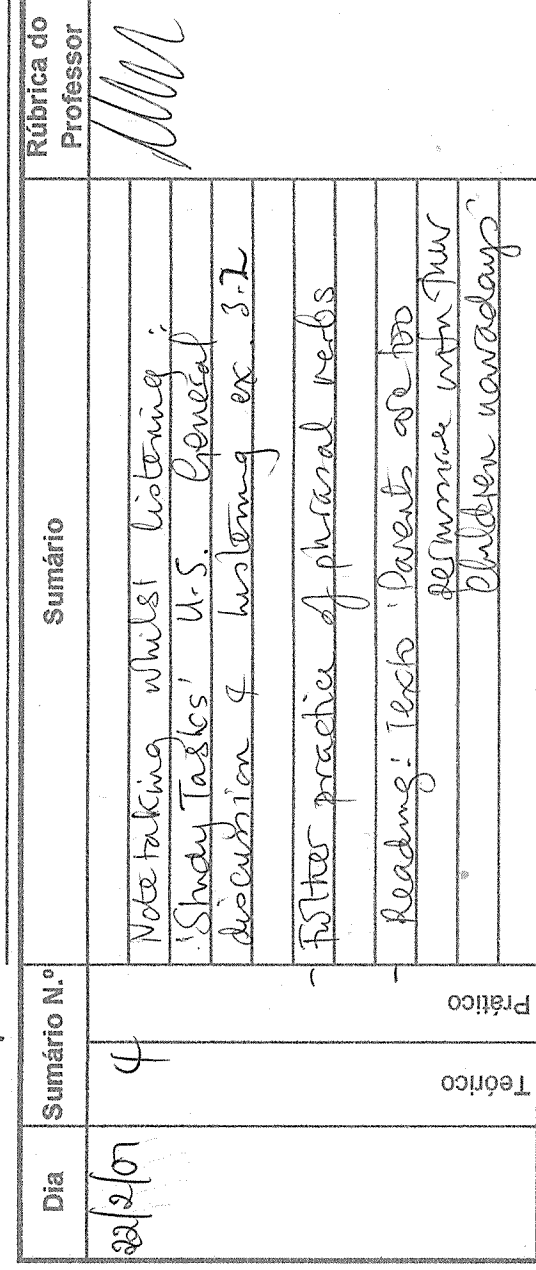 Dia
Sumário N.º
Sumário
Rúbrica do
Professor
22/2/01
4
Teórico
Prático
Notetaking whilst listening:
'Study Tasks' U.S. General
discussion & listening ex. 3.2
- Further practice of phrasal verbs
- Reading: Texto 'Parents are too
permissive with their
children nowadays'